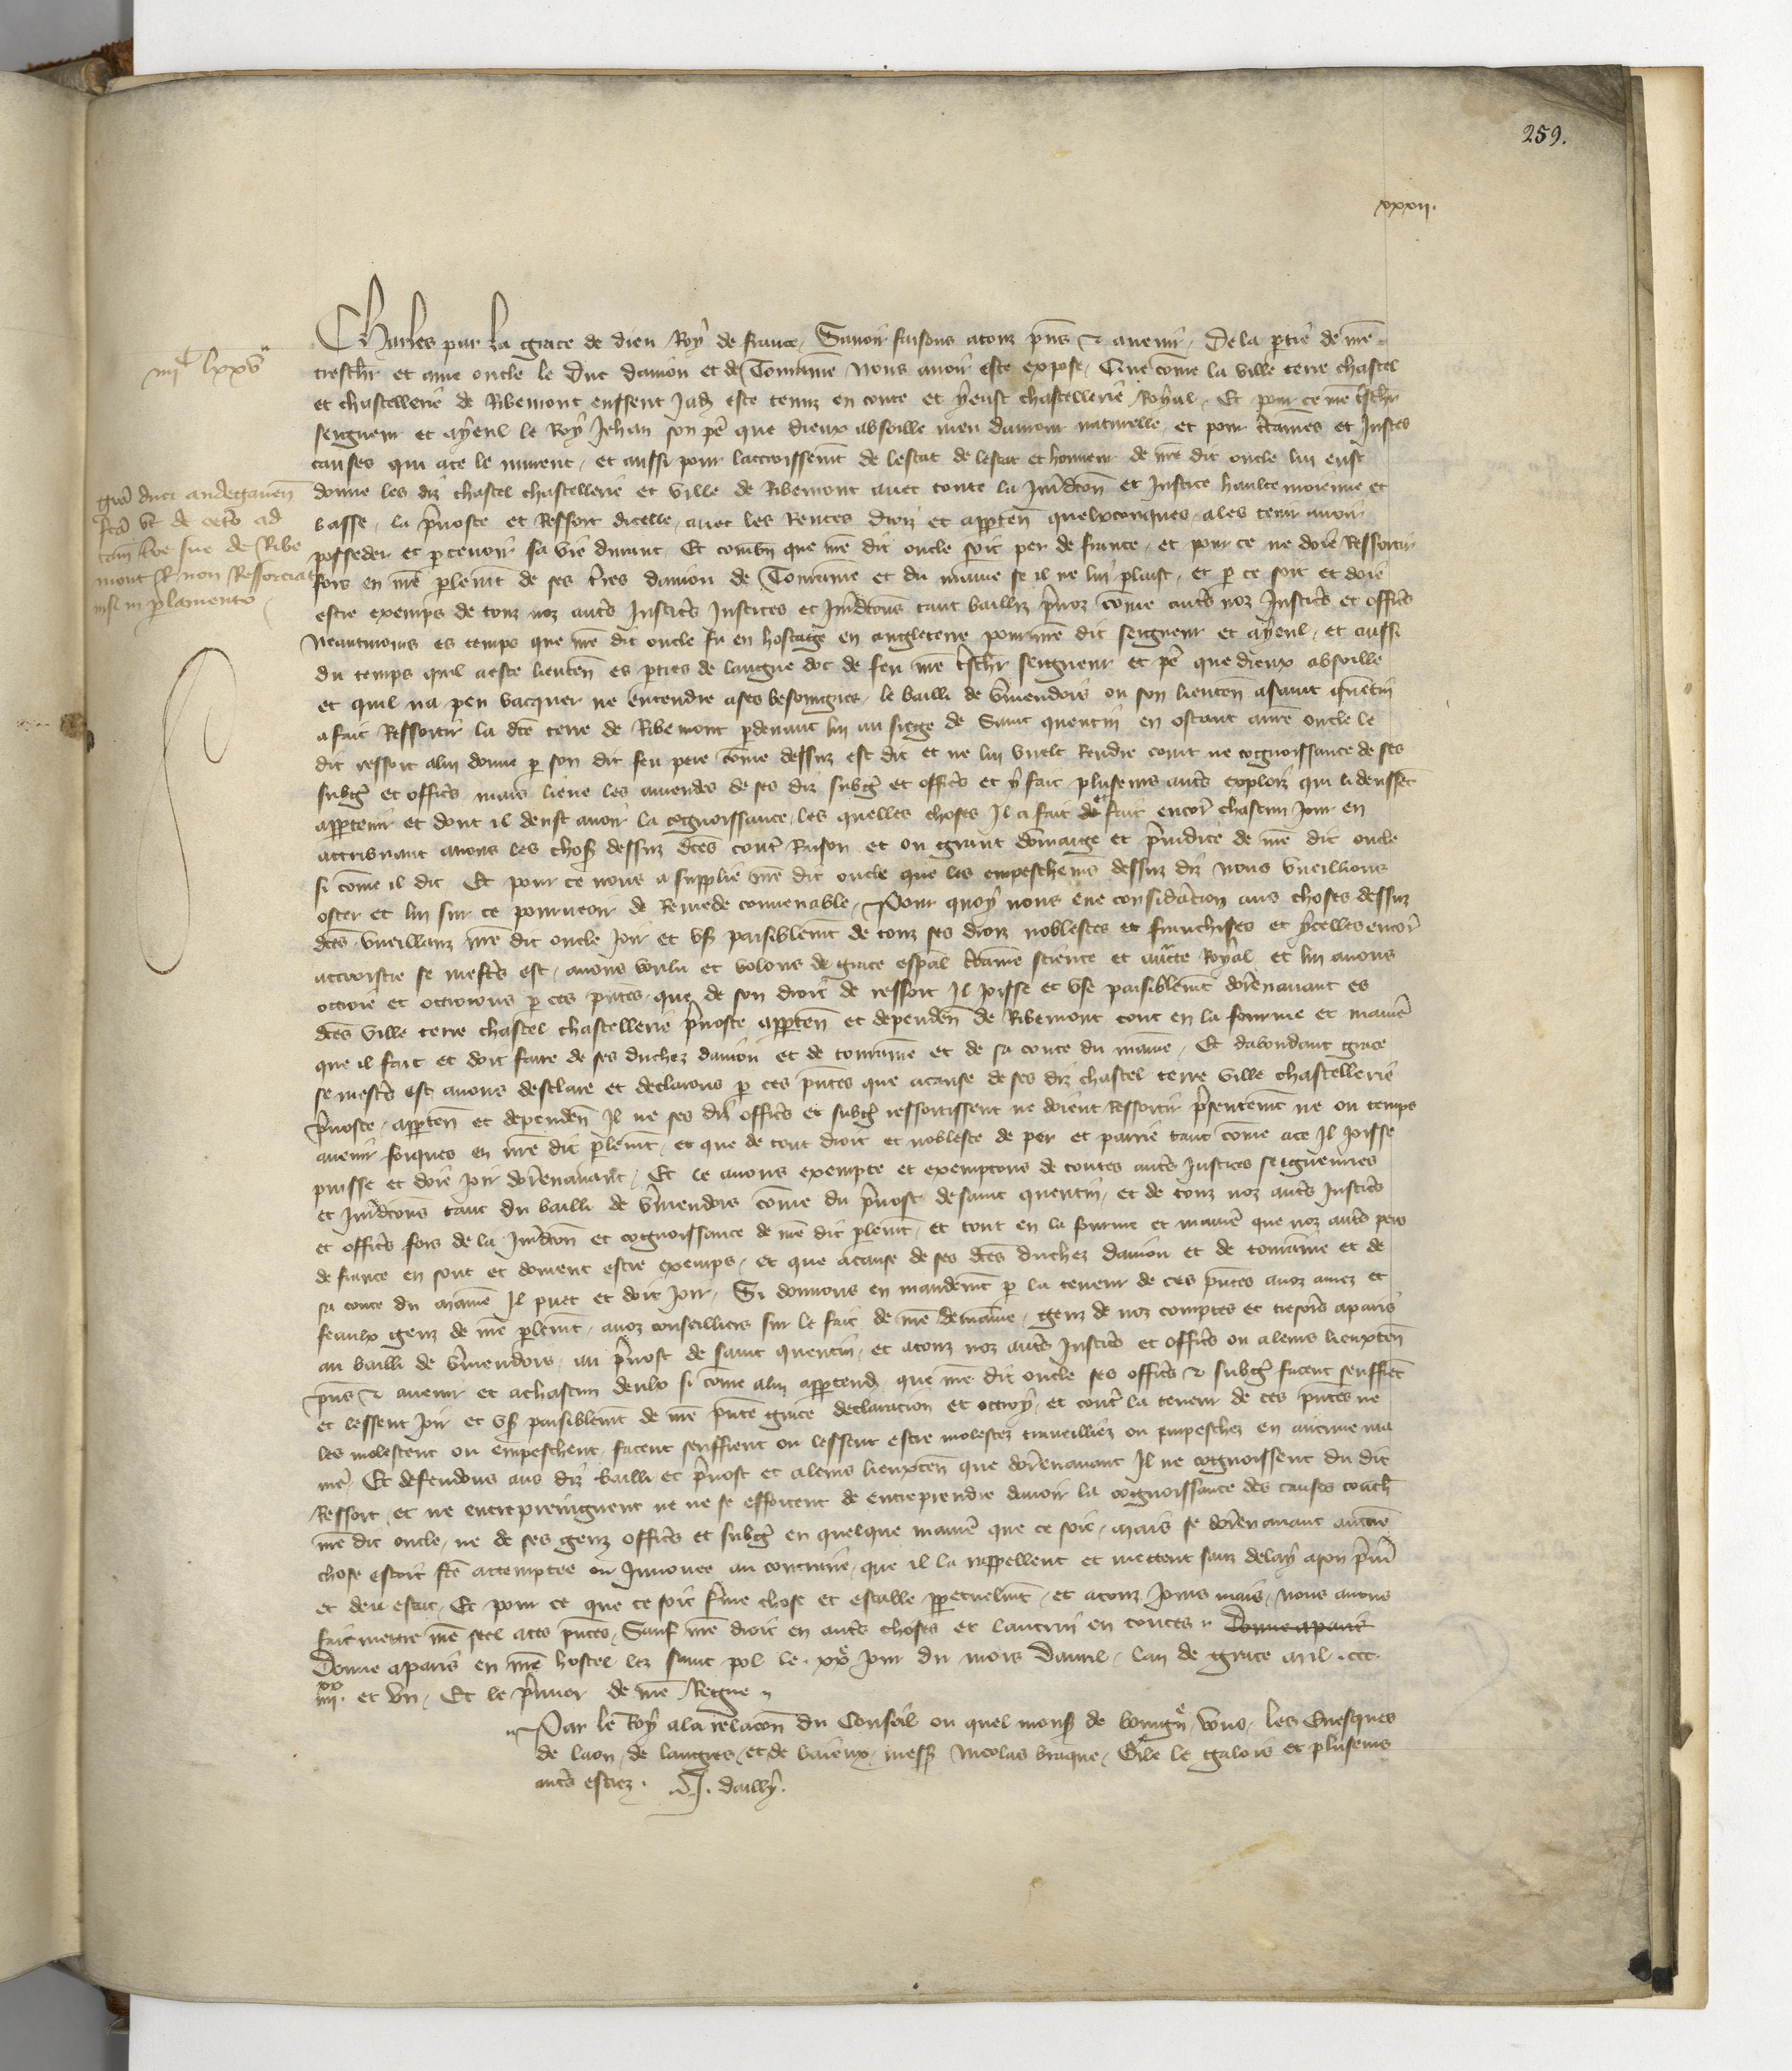 259.
xxxii.
Charles par la grace de dieu Roy de france, Sauoir faisons a touz pns ⁊ auenir, De la partie de nre
treschr et ame oncle le Duc daniou et de Touraine Nous auoir este expose, Que comme la ville terre chastel
iiiic lxxv a
et chastellerie de Ribemont eussent Jadis este tenuz en conte et y eust chastellerie Royal, Et pour ce nre tschr
seigneur et ayeul le Roy Jehan son pe que dieux absoille meu damour naturelle, et pour ctaines et Justes
causes qui ace le murent, et aussi pour laccroissemt de lestat de lestat et honneur de nre dit oncle lui eust
donne les diz chastel chastellerie et ville de Ribemont auec toute la Juridicon et Justice haulte moienne et
gra duci andegauen
fca de
ad
tam sue de Ribe
mont non Ressorciat
nisi in parlamento
basse, la preuoste et Ressort dicelle, auec les Rentes droiz et apparten quelxconques, a les tenir auoir
posseder et perceuoir sa vie durant, Et combn que nre dit oncle soit per de france, et pour ce ne doie Ressortir
fors en nre plemt de ses tres daniou de Touraine et du maine se il ne lui plaist, et par ce soit et doie
estre exemps de touz noz autres Justices Justices et Juridicons tant bailliz preuoz come autres noz Justices et offics
Neantmoins es temps que nre dit oncle fu en hostage en angleterre pour nre dit seigneur et ayeul, et aussi
du temps quil a este lieuten es parties de langue doc de feu nre tschr seigneur et pe que dieux absoille
et quil na peu vacquer ne entendre a ses besoingnes, le bailli de Vmendois ou son lieuten a saint quentin
a fait Ressortir la dce terre de Ribemont perdeuant lui au siege de Saint quentin en ostant a nre oncle le
dit ressort a lui donne par son dit feu pere come dessuz est dit et ne lui vuelt Rendre court ne cognoissance de ses
subgiz et offics mais lieue les amendes de ses diz subgiz et offics et y fait pluseurs autres exploiz qui li deussent
appartenir et dont il deust auoir la cognoissance, les quelles choses Il a fait de et fait encor chascun Jour en
attrisnant auons les choses dessuz dces contre Raison et ou grant domaige et preiudice de nre dit oncle
si come il dit, Et pour ce nous a supplie nre dit oncle que les empeschemens dessuz diz Nous vueillions
oster et lui sur ce pourueoir de Remede conuenable, Pour quoy nous eue consideracion aus choses dessuz
dces vueillanz nre dit oncle Joir et user paisiblemt de touz ses droiz noblesces et franchises et ycelles encor
accroistre se mestres est, auons voulu et volons de grace espal ctaine science et aucte Royal et lui auons
octroie et octroions par ces pntes, que de son droit de ressort Il joisse et use paisiblemt dorenauant es
dces ville terre chastel chastellerie preuoste apparten et dependen de Ribemont tout en la fourme et maniere
que il fait et doit faire de ses duchez daniou et de touraine et de sa conte du maine, Et dabondant grace
se mestres est auons desclare et declarons par ces pntes que a cause de ses diz chastel terre ville chastellerie
preuoste, apparten et dependen Il ne ses diz offics et subgiz ressortissent ne doient Ressortir presentemt ne ou temps
auenir fors en nre dit plemt, et que de tout droit et noblesce de per et parrie tant come a ce Il joisse
puisse et doie Joir dorenauant, Et le auons exempte et exemptons de toutes autres Justices seigneuries
et Juridicons tant du bailli de Vmendois come du preuost de saint quentin, et de touz noz autres Justices
et offics fors de la Juridicon et cognoissance de nre dit plemt, et tout en la fourme et maniere que noz autres pers
de france en sont et doiuent estre exemps, et que a cause de ses dces duchez daniou et de touraine et de
sa conte du maine Il puet et doit Joir, Si donnons en mandemt par la teneur de ces pntes a noz amez et
feaulx genz de nre plemt, a noz conseilliers sur le fait de nre demaine, genz de noz comptes et tresors a paris
au bailli de Vmendois, au preuost de saint quentin, et a touz noz autres Justices et offics ou a leurs lieuxten
pns ⁊ auenir et a chascun deulx si come a lui appartendra, que nre dit oncle ses offics ⁊ subgiz facent seuffrent
et lessent Joir et user paisiblemt de nre pnte grace declaracion et octroy, et contre la teneur de ces pntes ne
les molestent ou empeschent, facent seuffrent ou lessent estre molestez trauailliez ou empeschez en aucune ma
niere, Et defendons aus diz bailli et preuost et a leurs lieuxten que dorenauant Il ne cognoissent du dit
Ressort, et ne entrepreingnent ne ne se efforcent de entreprendre dauoir la cognoissance des causes touch
nre dit oncle, ne de ses genz offics et subgiz en quelque maniere que ce soit, mais se dorenauant aucune
chose estoit fce attemptee ou Innouee au contraire, que il la rappellent et mettent sanz delay a pon prim
et deu estat, Et pour ce que ce soit ferme chose et estable perpetuelmt, et a touz Jours mais, Nous auons
fait mettre nre seel a ces pntes, Sauf nre droit en autres choses et lautrui en toutes, Donne a paris
Donne a paris en nre hostel lez saint pol le .xxe. Jour du mois dauril, lan de grace mil .ccc.
iiii xx. et Vn, Et le premier de nre Regne
Par le Roy a la relacon du Conseil ou quel mons de bourgne, vous, les Euesques
de laon, de langres, et de baieux, mess Nicolas braque, Gile le galois et pluseurs
autres estiez. J. dailly.